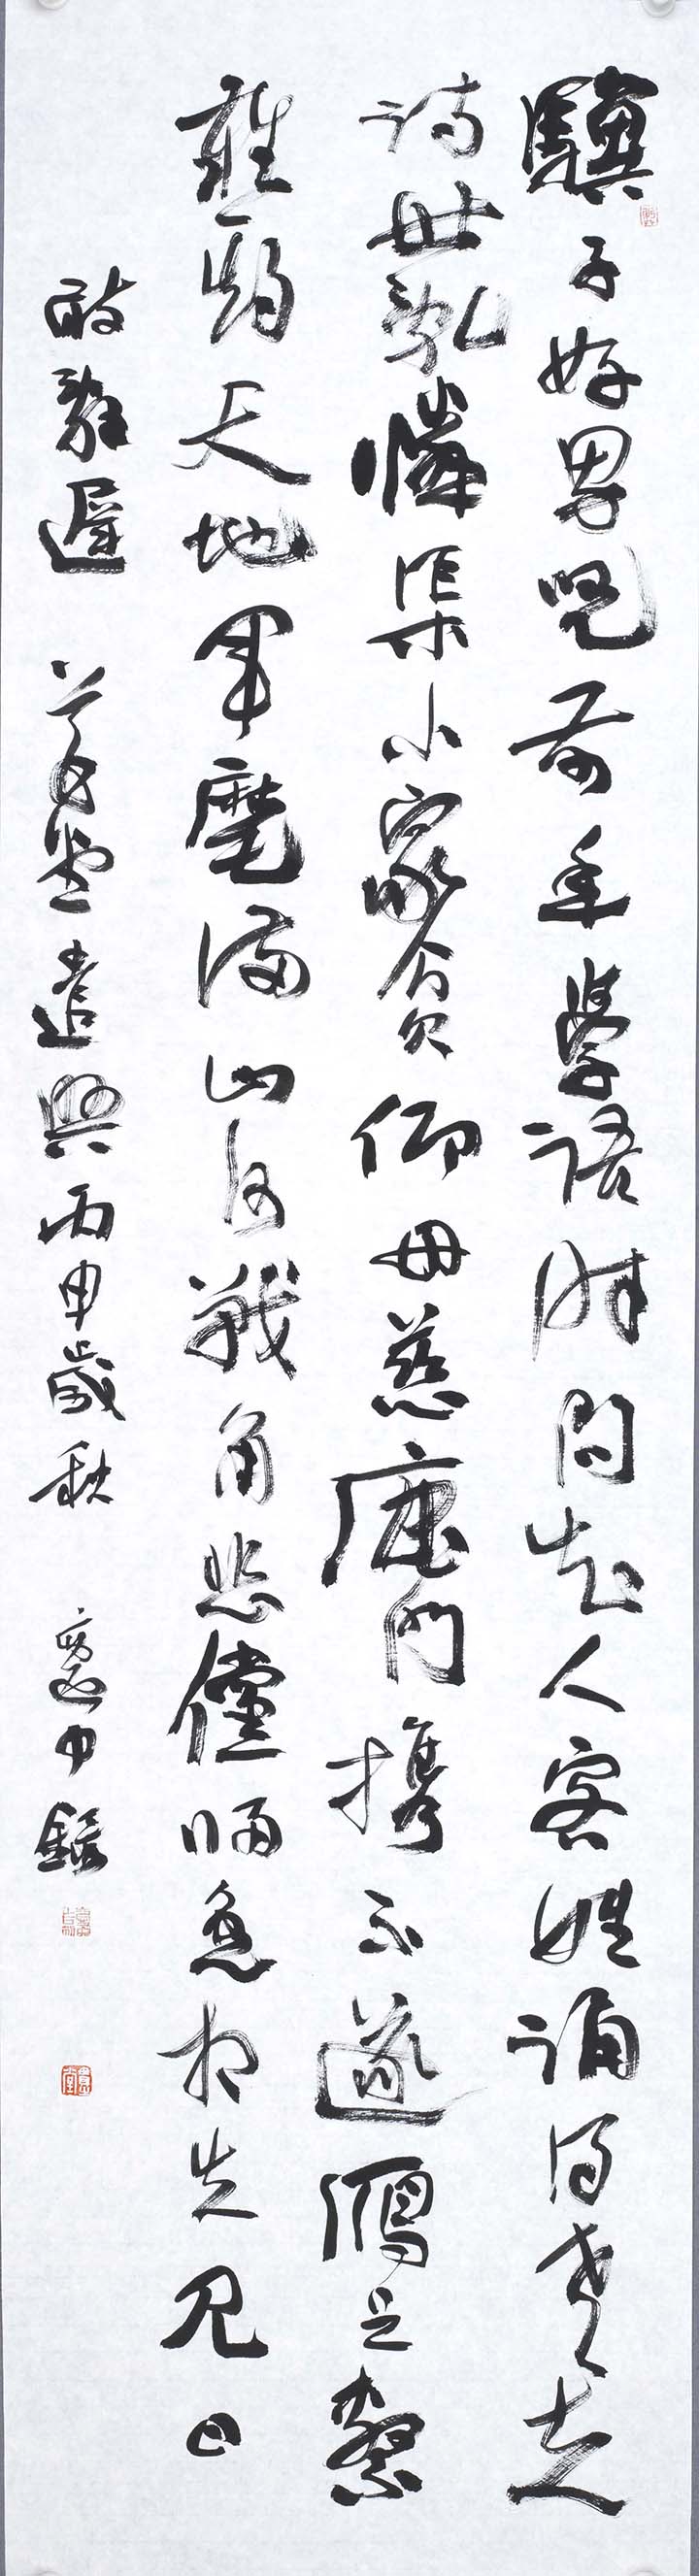 驥子好男兒前年學語時問知人客姓誦得老夫
詩世亂憐渠小家貧仰母慈鹿門攜不遂鴈足繫
難期天地軍麾滿山河戰角悲儻歸免相失見日
敢辭遲 草堂遣興丙申歲秋